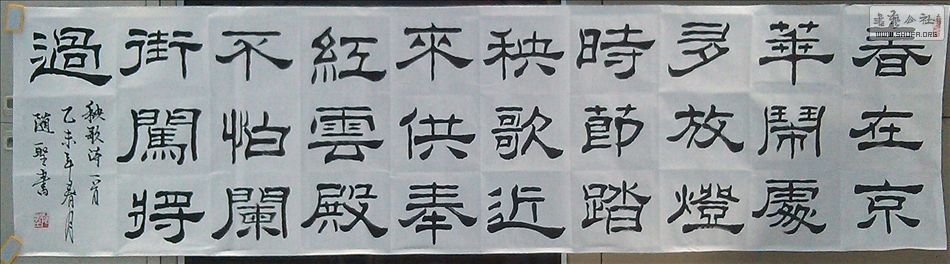 春在京
華鬧處
多放燈
時節踏
秧歌近
來供奉
紅雲殿
不怕闌
街闖將
過
秧歌诗一首
乙未年春月
随書
公社
WWW.SHUFA.ORG